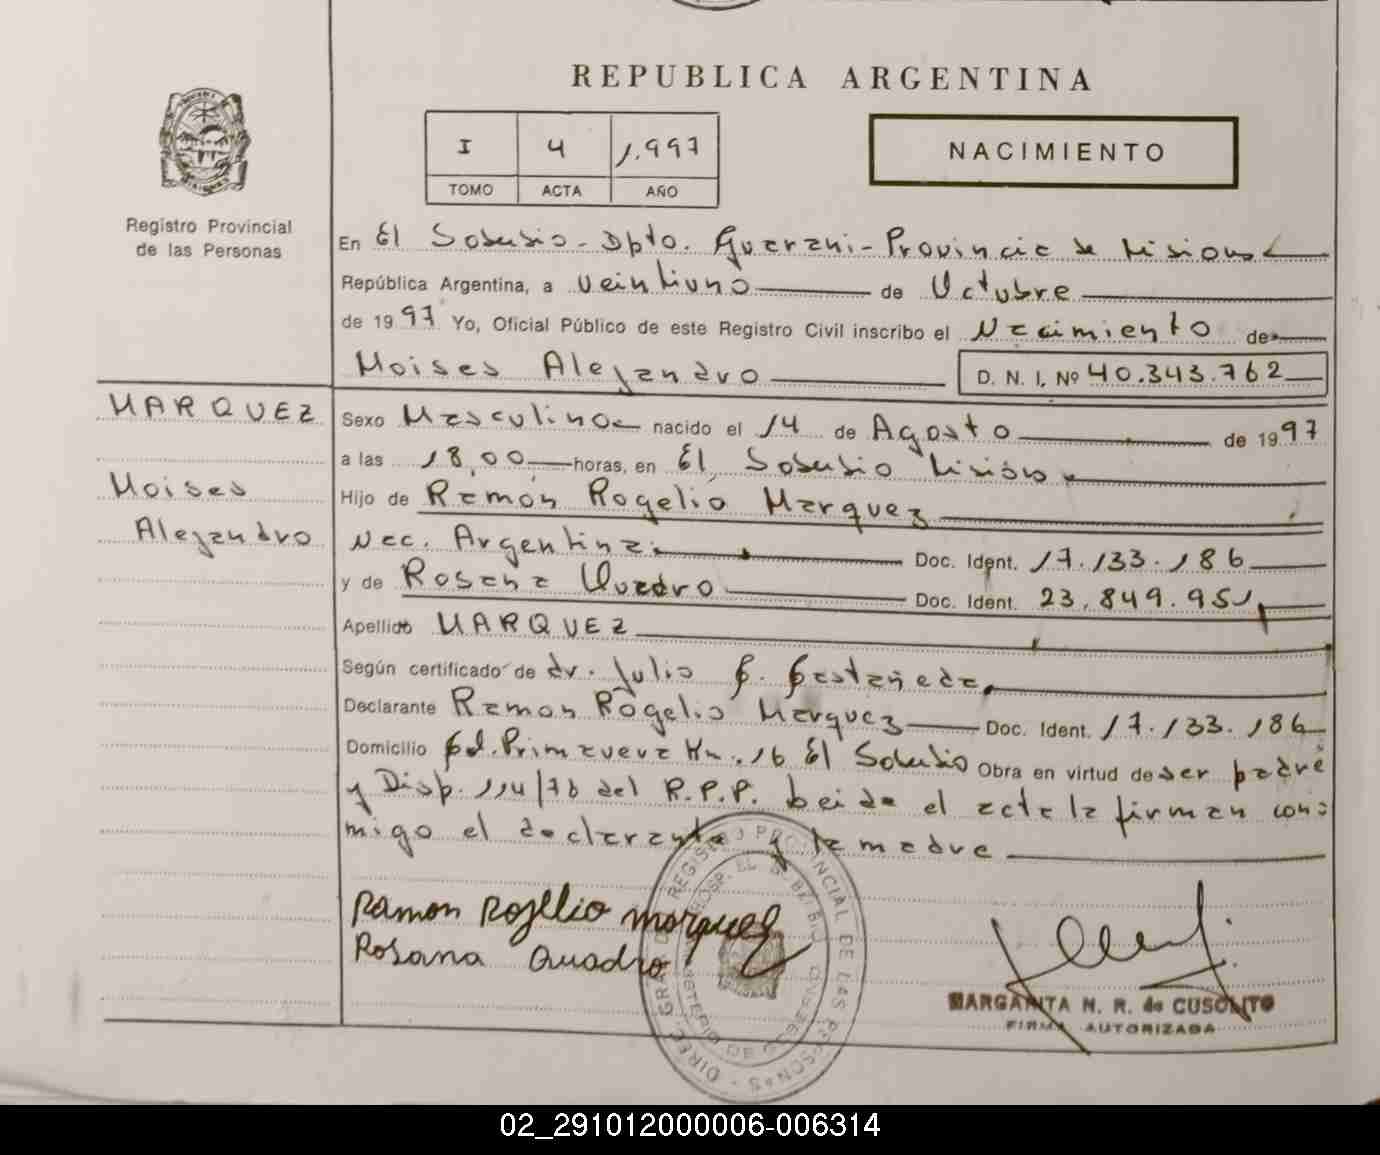 REPUBLICA ARGENTINA
I 4 1.997
TOMO ACTA AÑO
NACIMIENTO
Registro Provincial
de las Personas
En El Soberbio - Dpto. Guarani - Provincia de Misiones
República Argentina, a veintiuno de Octubre
de 1997 Yo, Oficial Público de este Registro Civil inscribo el Nacimiento de
Moises Alejandro D. N. I. Nº 40.343.762
MARQUEZ
Moises
Alejandro
Sexo Masculino nacido el 14 de Agosto de 1997
a las 18,00 horas, en El Soberbio Misiones
Hijo de Ramón Rogelio Marquez
Nac. Argentina. Doc. Ident. 17.133.186
y de Rosana Quadro Doc. Ident. 23.849.951
Apellido MARQUEZ
Según certificado de dr. Julio C. Castañeda
Declarante Ramon Rogelio Marquez Doc. Ident. 17.133.186
Domicilio Col. Primavera Km. 16 El Soberbio Obra en virtud de ser padre
y Disp. 114/78 del R.P.P. leida el acta la firman con=
migo el declarante y la madre
Ramon Rogelio Marquez
Rosana Quadro
DIREC. GRAL. DE REGISTRO PROVINCIAL DE LAS PERSONAS
HOSP. EL SOBERBIO
MINISTERIO DE GOBIERNO
MARGARITA N. R. de CUSOLITO
FIRMA AUTORIZADA
02_291012000006-006314